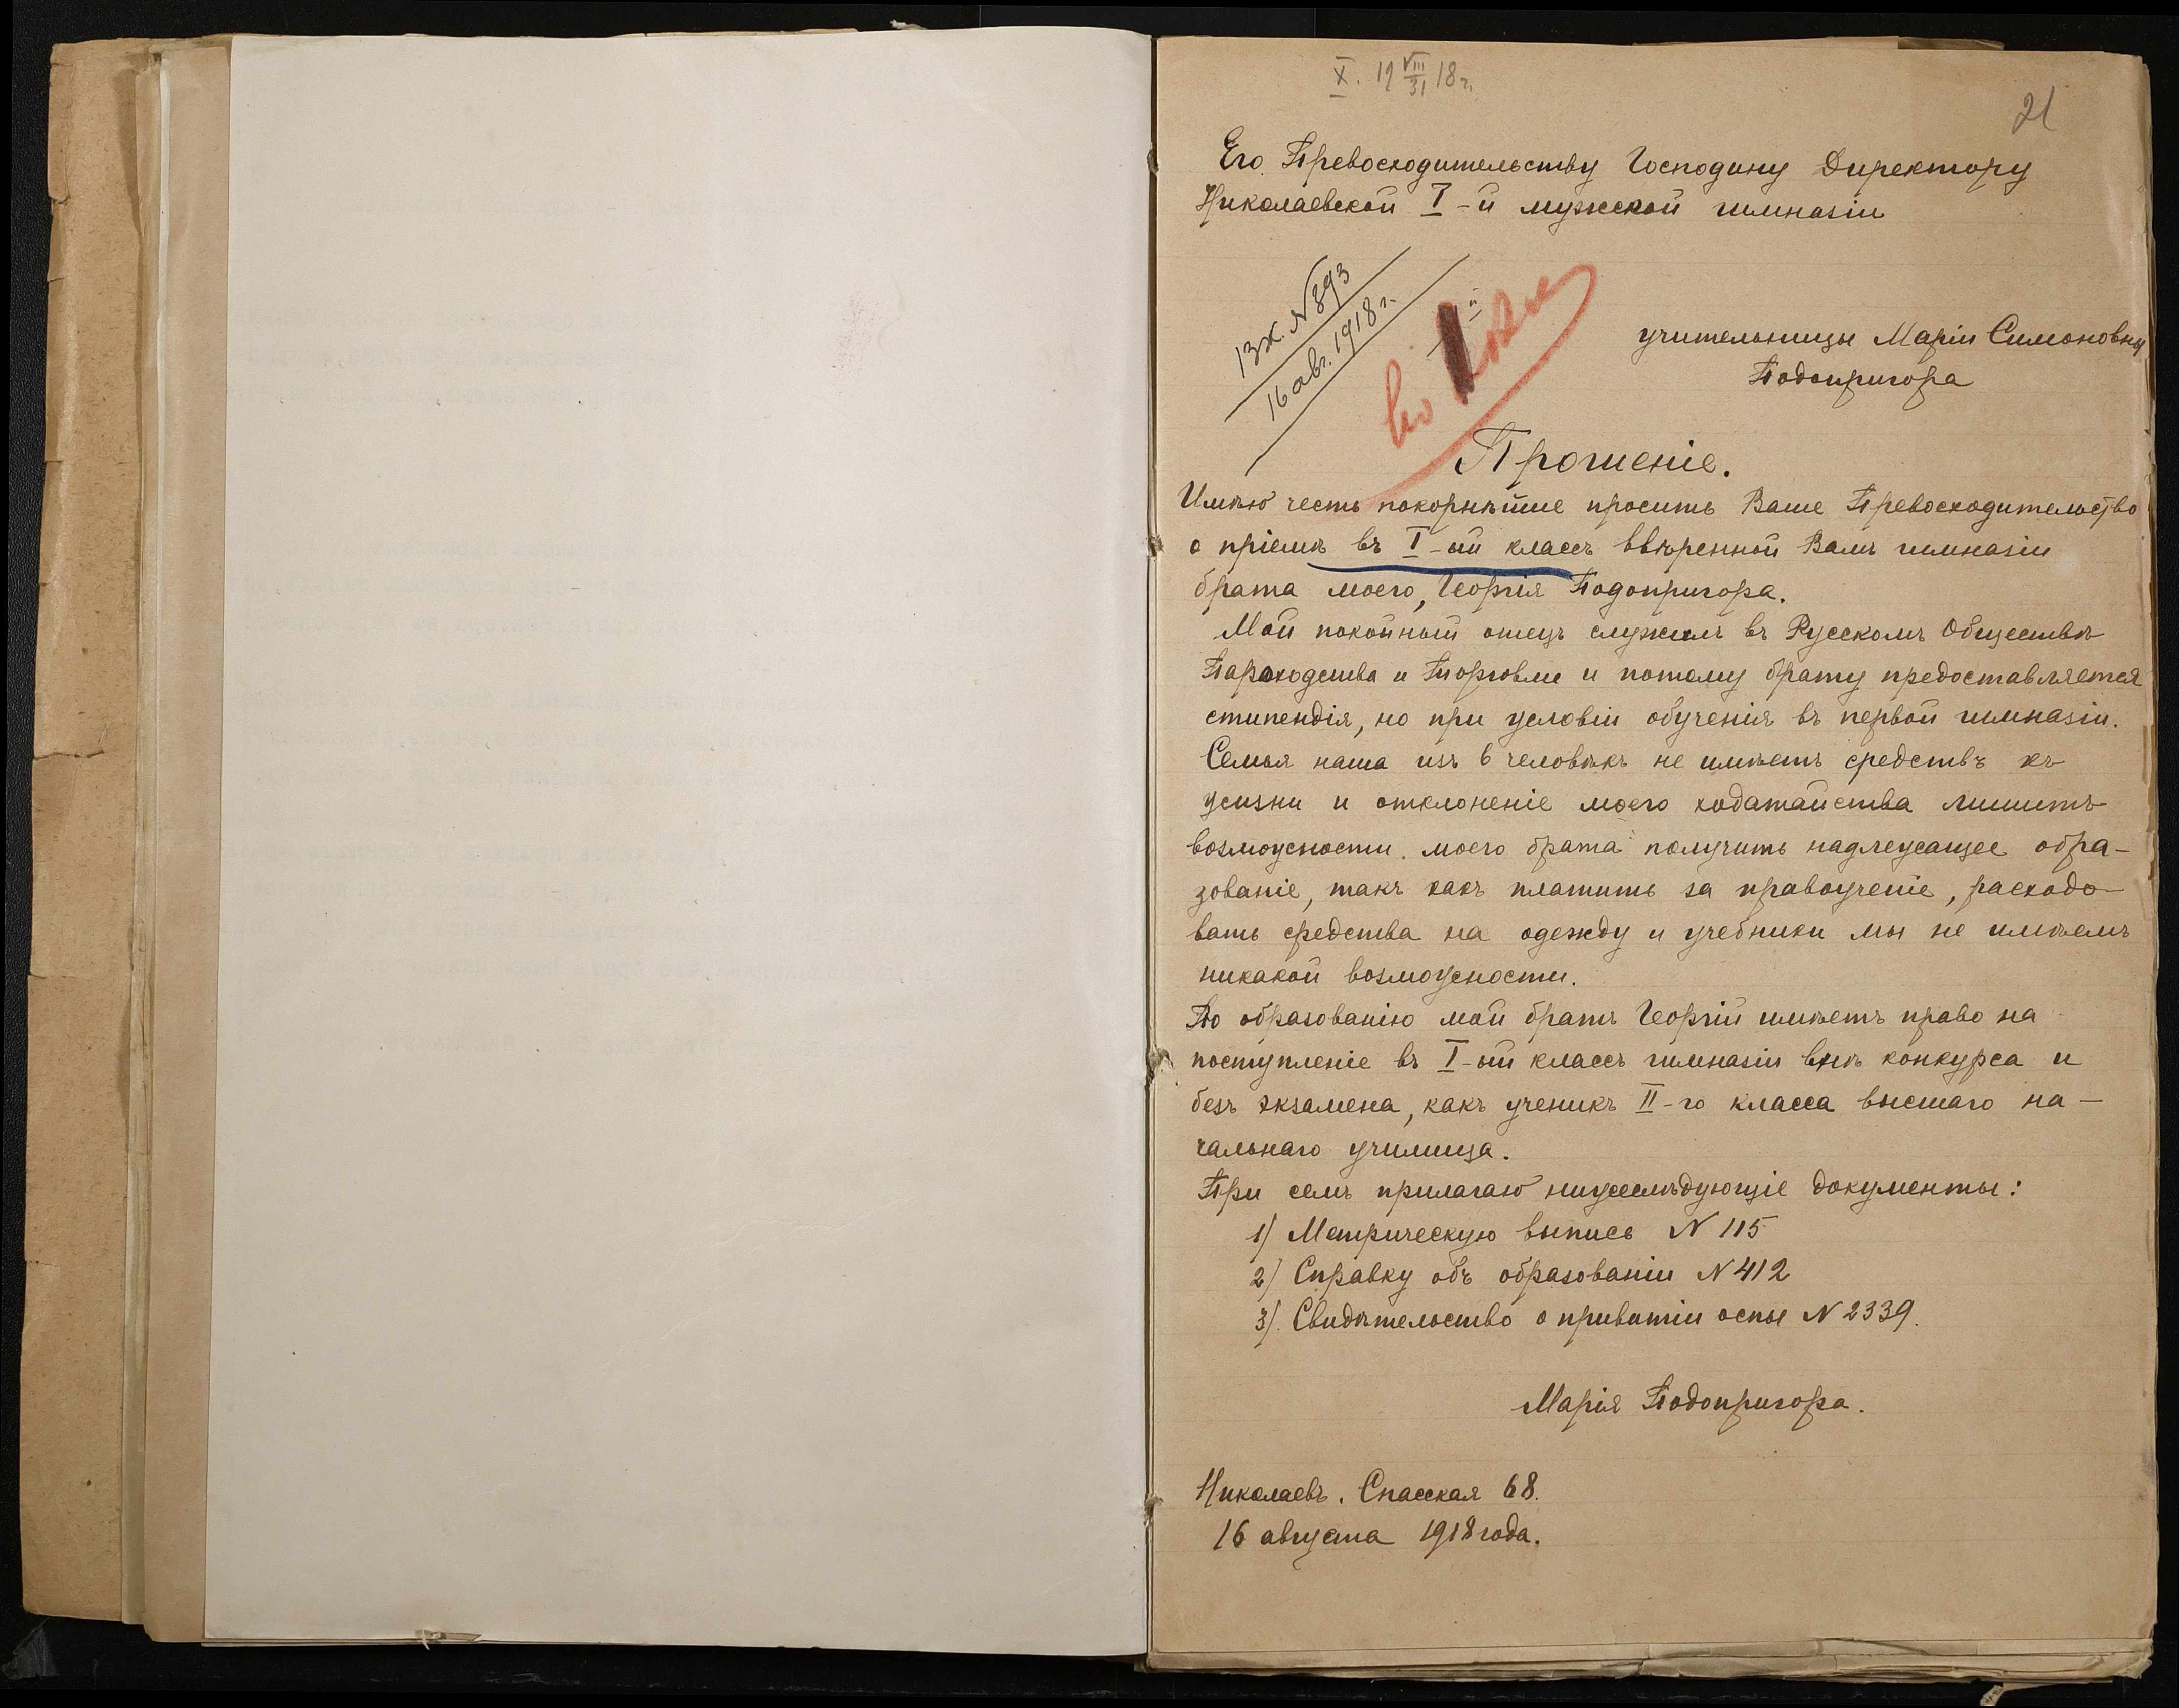 X. 19 VIII/31 18 г.
21
Его Превосходительству Господину Директору
Николаевской I-й мужской гимназіи
вх. № 893
16 авг. 1918 г.
учительницы Маріи Симоновны
Подопригора
Прошеніе.
Имѣю честь покорнѣйше просить Ваше Превосходительство
о пріемѣ въ I-ый классъ ввѣренной Вамъ гимназіи
брата моего, Георгія Подопригора.
Мой покойный отецъ служилъ въ Русскомъ Обществѣ
Пароходства и Торговли и потому брату предоставляется
стипендія, но при условіи обученія въ первой гимназіи.
Семья наша изъ 6 человѣкъ не имѣетъ средствъ къ
жизни и отклоненіе моего ходатайства лишитъ
возможности моего брата получить надлежащее обра-
зованіе, такъ какъ платить за правоученіе, расходо-
вать средства на одежду и учебники мы не имѣемъ
никакой возможности.
По образованію мой братъ Георгій имѣетъ право на
поступленіе въ I-ый классъ гимназіи внѣ конкурса и
безъ экзамена, какъ ученикъ II-го класса высшаго на-
чальнаго училища.
При семъ прилагаю нижеслѣдующіе документы:
1) Метрическую выпись N 115
2) Справку объ образованіи N 412
3). Свидѣтельство о привитіи оспы N 2339.
Марія Подопригора.
Николаевъ. Спасская 68.
16 августа 1918 года.